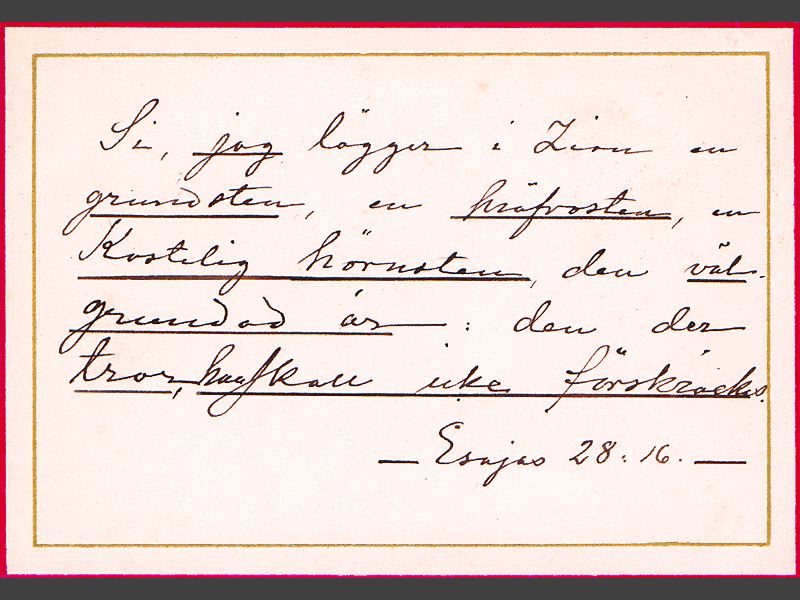 Si, jag lägger i Zion en
grundsten, en pröfvosten, en
Kostelig hörnsten, den väl-
grundad är: den der
tror, han skall icke förskräckas.
— Esajas 28:16. —